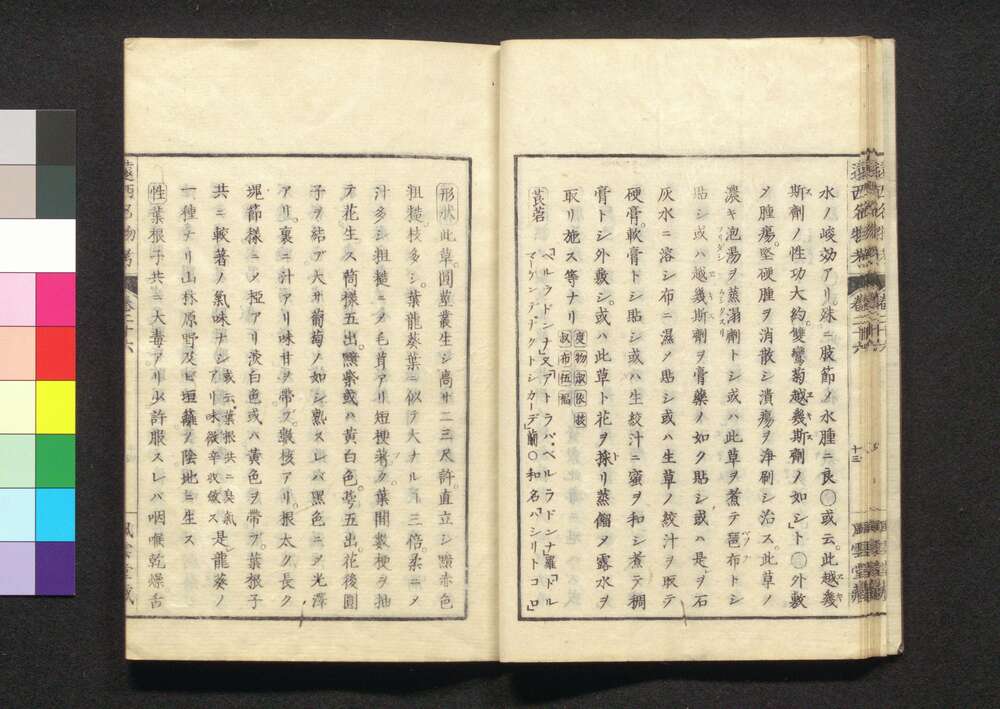 水ノ峻効アリ。殊ニ肢節ノ水腫ニ良○或云。此越幾
斯劑ノ性功大約。雙鸞菊越幾斯劑ノ如シ」ト○外敷
〆腫瘍。堅硬腫ヲ消散シ潰瘍ヲ浄刷シ治ス。此草ノ
濃キ泡湯ヲ蒸溻劑トシ或ハ此草ヲ煮テ琶布トシ
貼シ或ハ越幾斯劑ヲ膏藥ノ如ク貼シ或ハ是ヲ石
灰水ニ溶シ布ニ濕メ貼シ或ハ生草ノ絞汁ヲ取テ
硬膏。軟膏トシ貼シ或ハ生絞汁ニ蜜ヲ和シ煮テ稠
膏トシ外敷シ。或ハ此草ト花ヲ採リ蒸餾タ露水ヲ
取リ施ス等ナリ
莨菪 「ベルラドンナ」又「アトラバ・ベルラドンナ」羅「ドル
マーゲンデ・ナクトシカーデ」蘭○和名「ハシリトコロ」
形状此草圓莖叢生シ高サ二三尺許。直立シ黯赤色
粗糙。枝多シ。葉龍葵葉ニ似ヲ大ナルヿ三倍柔ニ〆
汁多シ粗糙ニ〆毛茸アリ短梗著ク葉間數梗ヲ抽
テ花生ス筒樣五出。黯紫或ハ黄白色。蕚五出花後圓
子ヲ結ブ大サ葡萄ノ如シ熟スレバ黑色ニ〆光澤
アリ。裏ニ汁アリ味甘ヲ帶ブ。數核アリ。根太ク長ク
塊節樣ニ〆椏アリ淡白色或ハ黄色ヲ帶ブ。葉根子
共ニ較著ノ氣味ナシ或云葉根共ニ臭氣アリ味微辛收斂ス是レ龍葵ノ
一種ナリ山林原野及ビ垣籬ノ陰地ニ生ス
性葉根子共ニ大毒アリ少許服スレバ咽喉乾燥舌
遠西名物考 卷三十六
十三
風雲堂藏